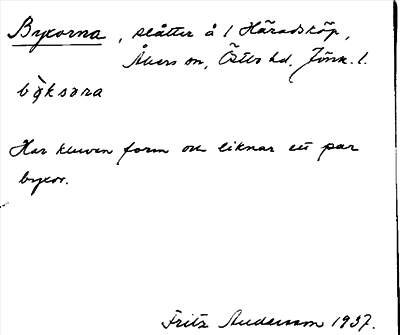 Byxorna, slåtter å 1 Häradsköp,
Åkers sn, Östbo hd. Jönk. l.
bỳksora
Har kluven form o. liknar ett par
byxor.
Fritz Andersson 1937.